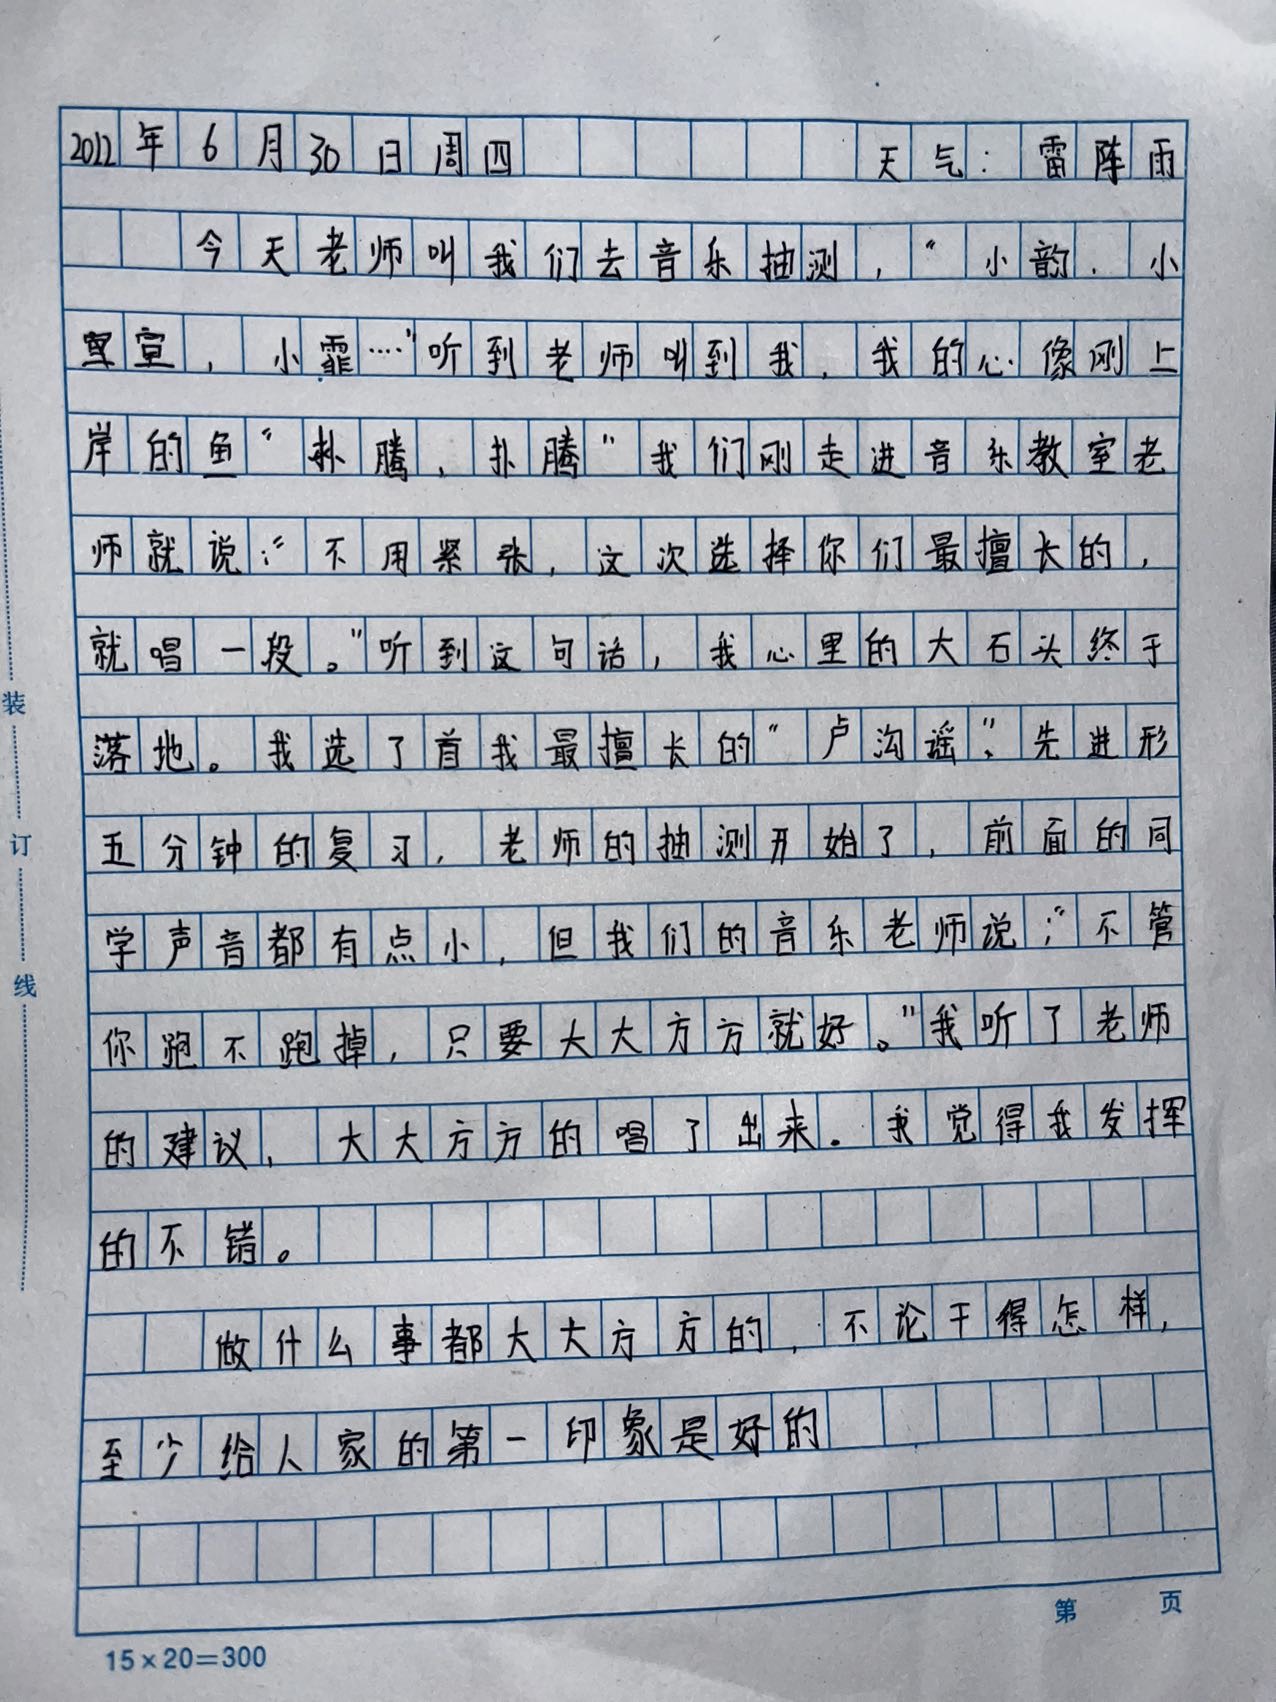 2022年6月30日周四 天气：雷阵雨
今天老师叫我们去音乐抽测，“小韵，小
宣，小霏……”听到老师叫到我，我的心像刚上
岸的鱼“扑腾，扑腾”我们刚走进音乐教室老
师就说：“不用紧张，这次选择你们最擅长的，
就唱一段。”听到这句话，我心里的大石头终于
落地。我选了首我最擅长的“卢沟谣”，先进形
五分钟的复习，老师的抽测开始了，前面的同
学声音都有点小，但我们的音乐老师说：“不管
你跑不跑掉，只要大大方方就好。”我听了老师
的建议，大大方方的唱了出来。我觉得我发挥
的不错。
做什么事都大大方方的，不论干得怎样，
至少给人家的第一印象是好的
装
订
线
第 页
15×20=300